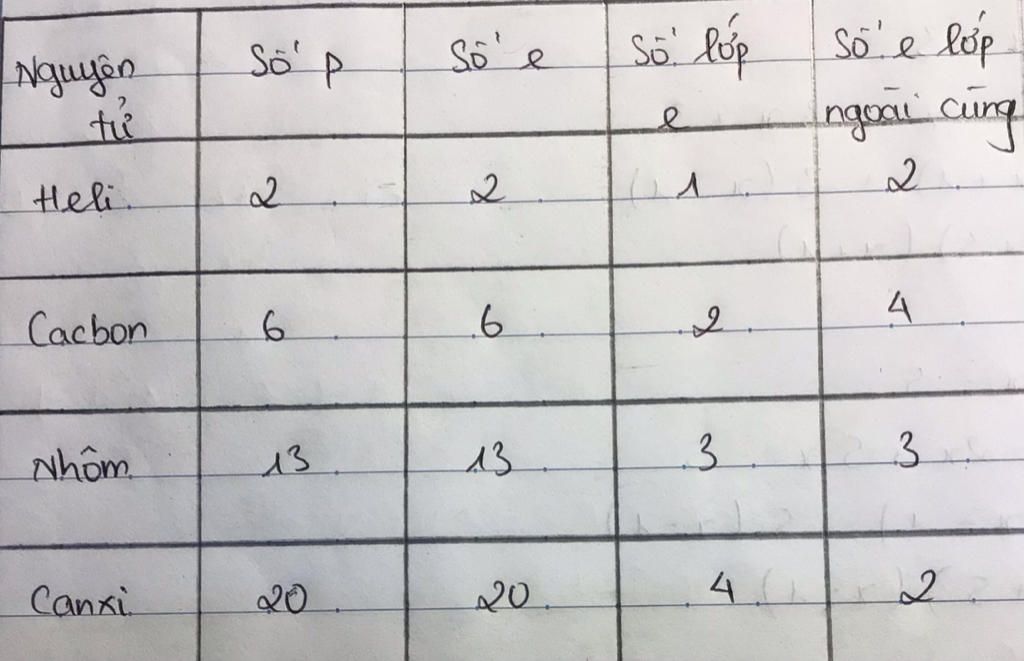 Nguyên tử | Số p | Số e | Số lớp e | Số e lớp ngoài cùng
Heli | 2 | 2 | 1 | 2
Cacbon | 6 | 6 | 2 | 4
Nhôm | 13 | 13 | 3 | 3
Canxi | 20 | 20 | 4 | 2